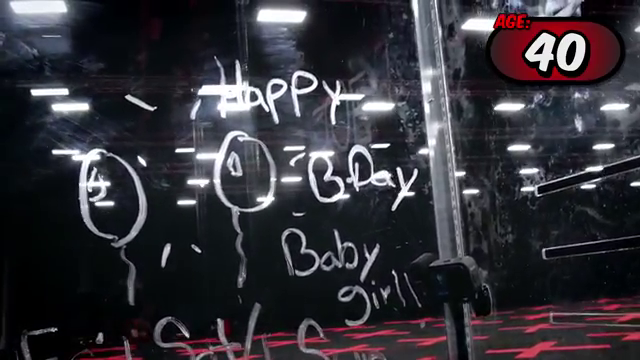 AGE:
40
Happy
B-Day
Baby
girl!